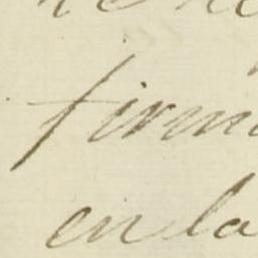 firm
en la